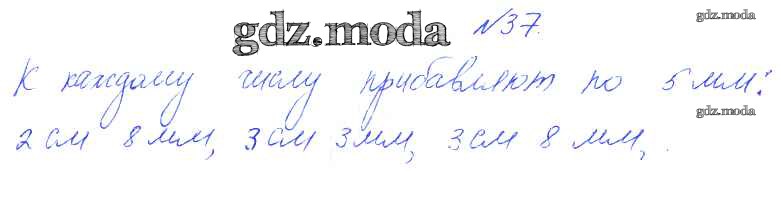 gdz.moda №37. gdz.moda
К каждому числу прибавляют по 5 мм:
gdz.moda
2 см 8 мм, 3 см 3 мм, 3 см 8 мм, .